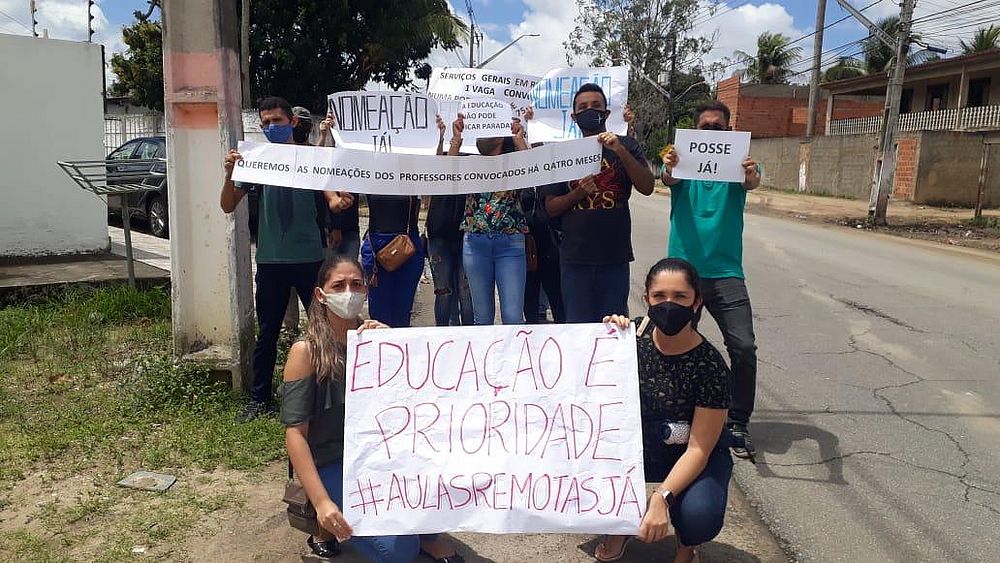 SERVIÇOS GERAIS EM
1 VAGA
A EDUCAÇÃO
NÃO PODE
FICAR PARADA
NOMEAÇÃO
JÁ!
NOMEAÇÃO
QUEREMOS AS NOMEAÇÕES DOS PROFESSORES CONVOCADOS HÁ QATRO MESES
POSSE
JÁ!
EDUCAÇÃO É
PRIORIDADE
#AULASREMOTASJÁ